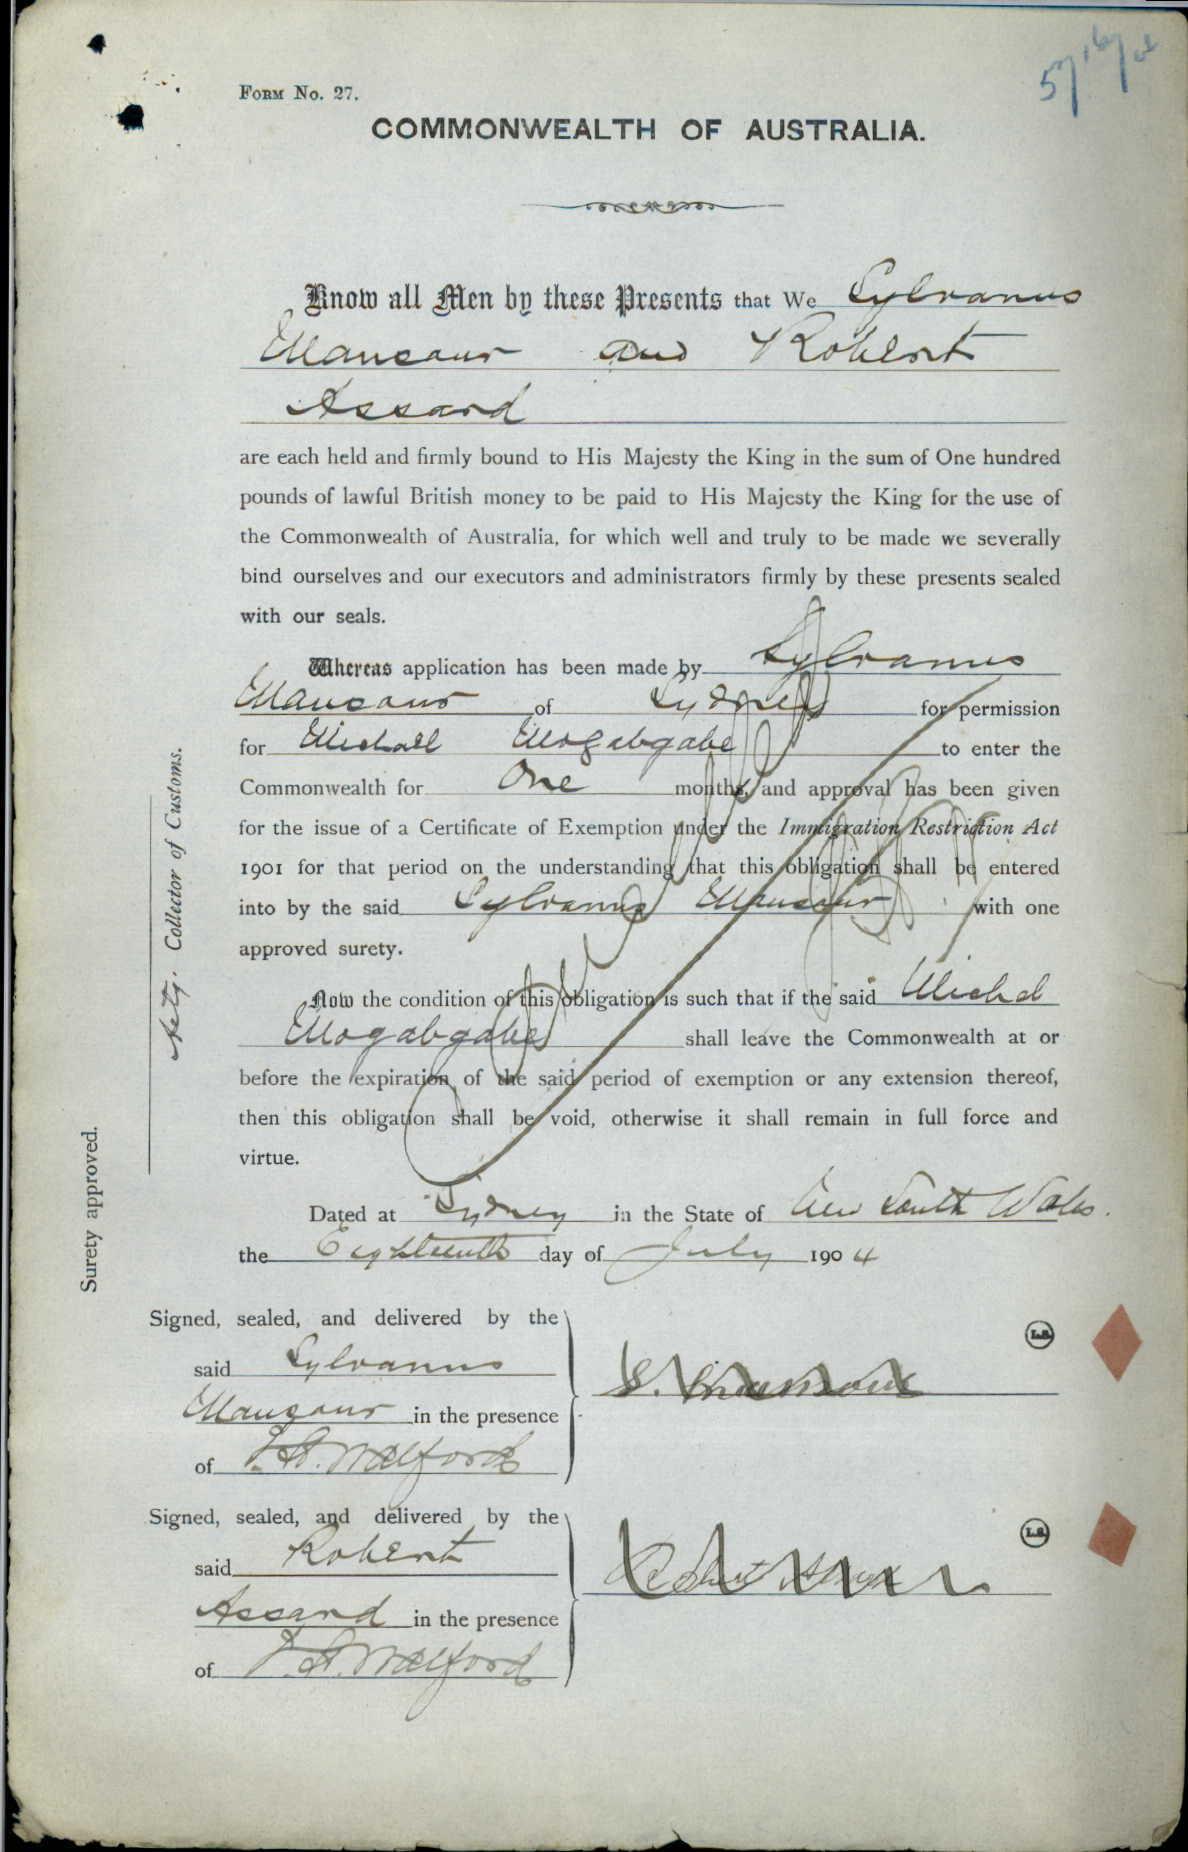 FORM No. 27.
COMMONWEALTH OF AUSTRALIA.
Know all Men by these Presents that We Sylvanus
Mansour and Robert
Assard
are each held and firmly bound to His Majesty the King in the sum of One hundred
pounds of lawful British money to be paid to His Majesty the King for the use of
the Commonwealth of Australia, for which well and truly to be made we severally
bind ourselves and our executors and administrators firmly by these presents sealed
with our seals.
Whereas application has been made by Sylvanus
Mansour of Sydney for permission
for Michall Mogabgabe to enter the
Commonwealth for One months, and approval has been given
for the issue of a Certificate of Exemption under the Immigration Restriction Act
1901 for that period on the understanding that this obligation shall be entered
into by the said Sylvanus Mansour with one
approved surety.
Now the condition of this obligation is such that if the said Michel
Mogabgabe shall leave the Commonwealth at or
before the expiration of the said period of exemption or any extension thereof,
then this obligation shall be void, otherwise it shall remain in full force and
virtue.
Dated at Sydney in the State of New South Wales.
the Eighteenth day of July 1904
Surety approved.
Actg. Collector of Customs.
Signed, sealed, and delivered by the
said Sylvanus
Mansour in the presence
of Walford
S. Mansour
L.S.
Signed, sealed, and delivered by the
said Robert
Assard in the presence
of Walford
Robert
L.S.